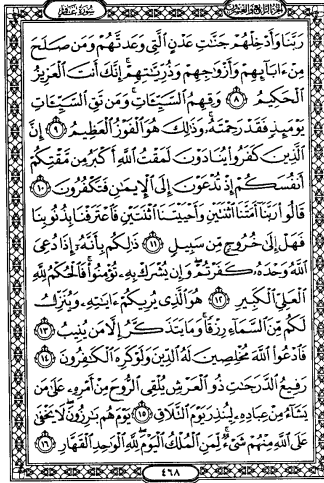 سورة غافر
الجزء الرابع والعشرون
رَبَّنَا وَأَدْخِلْهُمْ جَنَّٰتِ عَدْنٍ ٱلَّتِى وَعَدتَّهُمْ وَمَن صَلَحَ
مِنْ ءَابَآئِهِمْ وَأَزْوَٰجِهِمْ وَذُرِّيَّٰتِهِمْ إِنَّكَ أَنتَ ٱلْعَزِيزُ
ٱلْحَكِيمُ ٨ وَقِهِمُ ٱلسَّيِّـَٔاتِ وَمَن تَقِ ٱلسَّيِّـَٔاتِ
يَوْمَئِذٍ فَقَدْ رَحِمْتَهُۥ وَذَٰلِكَ هُوَ ٱلْفَوْزُ ٱلْعَظِيمُ ٩ إِنَّ
ٱلَّذِينَ كَفَرُوا۟ يُنَادَوْنَ لَمَقْتُ ٱللَّهِ أَكْبَرُ مِن مَّقْتِكُمْ
أَنفُسَكُمْ إِذْ تُدْعَوْنَ إِلَى ٱلْإِيمَٰنِ فَتَكْفُرُونَ ١٠
قَالُوا۟ رَبَّنَآ أَمَتَّنَا ٱثْنَتَيْنِ وَأَحْيَيْتَنَا ٱثْنَتَيْنِ فَٱعْتَرَفْنَا بِذُنُوبِنَا
فَهَلْ إِلَىٰ خُرُوجٍ مِّن سَبِيلٍ ١١ ذَٰلِكُم بِأَنَّهُۥٓ إِذَا دُعِىَ
ٱللَّهُ وَحْدَهُۥ كَفَرْتُمْ وَإِن يُشْرَكْ بِهِۦ تُؤْمِنُوا۟ فَٱلْحُكْمُ لِلَّهِ
ٱلْعَلِىِّ ٱلْكَبِيرِ ١٢ هُوَ ٱلَّذِى يُرِيكُمْ ءَايَٰتِهِۦ وَيُنَزِّلُ
لَكُم مِّنَ ٱلسَّمَآءِ رِزْقًا وَمَا يَتَذَكَّرُ إِلَّا مَن يُنِيبُ ١٣
فَٱدْعُوا۟ ٱللَّهَ مُخْلِصِينَ لَهُ ٱلدِّينَ وَلَوْ كَرِهَ ٱلْكَٰفِرُونَ ١٤
رَفِيعُ ٱلدَّرَجَٰتِ ذُو ٱلْعَرْشِ يُلْقِى ٱلرُّوحَ مِنْ أَمْرِهِۦ عَلَىٰ مَن
يَشَآءُ مِنْ عِبَادِهِۦ لِيُنذِرَ يَوْمَ ٱلتَّلَاقِ ١٥ يَوْمَ هُم بَٰرِزُونَ لَا يَخْفَىٰ
عَلَى ٱللَّهِ مِنْهُمْ شَىْءٌ لِّمَنِ ٱلْمُلْكُ ٱلْيَوْمَ لِلَّهِ ٱلْوَٰحِدِ ٱلْقَهَّارِ ١٦
٤٦٨